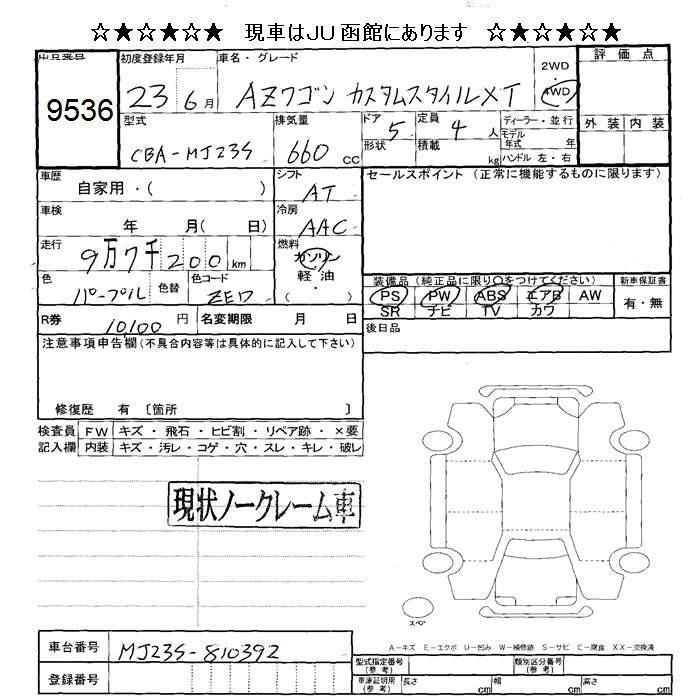 ☆★☆★☆★ 現車はJU函館にあります ☆★☆★☆★
出品番号 初度登録年月 車名・グレード 2WD 評価点
9536 23 6月 AZワゴン カスタムスタイルXT 4WD
型式 排気量 ドア 定員 ディーラー・並行 外装 内装
CBA-MJ23S 660cc 5 4人 モデル年式 年
形状 積載 kg ハンドル 左・右
車歴 自家用・( ) シフト AT セールスポイント(正常に機能するものに限ります)
車検 年 月( 日) 冷房 AAC
走行 9万7千200km 燃料 ガソリン 軽油 ( )
色 パープル 色替 色コード ZE7 装備品(純正品に限り○をつけてください) 新車保証書
PS PW ABS エアB AW 有・無
SR ナビ TV カワ
R券 10,100円 名変期限 月 日 後日品
注意事項申告欄(不具合内容等は具体的に記入して下さい)
修復歴 有 [箇所 ]
検査員 FW キズ・飛石・ヒビ割・リペア跡・×要
記入欄 内装 キズ・汚レ・コゲ・穴・スレ・キレ・破レ
現状ノークレーム車
スペア
A-キズ E-エクボ U-凹み W-補修跡 S-サビ C-腐食 XX-交換済
車台番号 MJ23S-810392
型式指定番号(参考) 類別区分番号(参考)
登録番号 車庫証明用(参考) 長さ cm 幅 cm 高さ cm